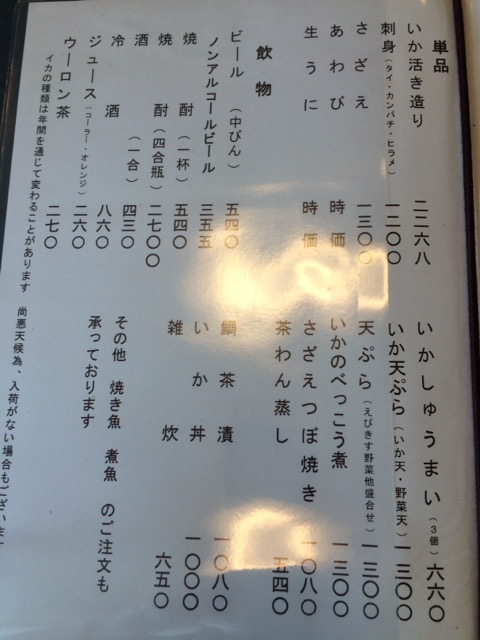 単品
いか活き造り 二二六八
刺身（タイ・カンパチ・ヒラメ） 一二〇〇
さざえ 一三〇〇
あわび 時価
生うに 時価
飲物
ビール（中びん） 五四〇
ノンアルコールビール 三五五
焼酎（一杯） 五四〇
焼酎（四合瓶） 二七〇〇
酒（一合） 四三〇
冷酒 八六〇
ジュース（コーラー・オレンジ） 二六〇
ウーロン茶 二七〇
いかしゅうまい（3個） 六六〇
いか天ぷら（いか天・野菜天） 一三〇〇
天ぷら（えびきす野菜他盛合せ） 一三〇〇
いかのべっこう煮 一三〇〇
さざえつぼ焼き 一〇八〇
茶わん蒸し 五四〇
鯛茶漬 一〇八〇
いか丼 一〇〇〇
雑炊 六五〇
その他 焼き魚 煮魚 のご注文も
承っております
イカの種類は年間を通じて変わることがあります 尚悪天候為、入荷がない場合もございま